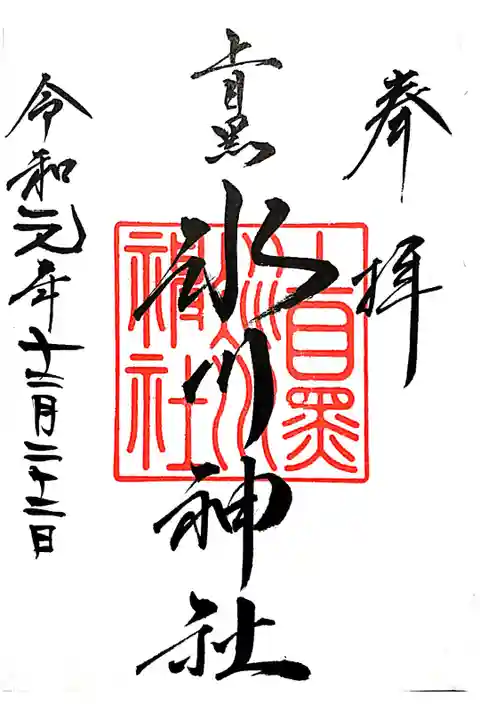 奉拝
上目黒
氷川神社
令和元年十二月二十二日
上目黒
氷川
神社